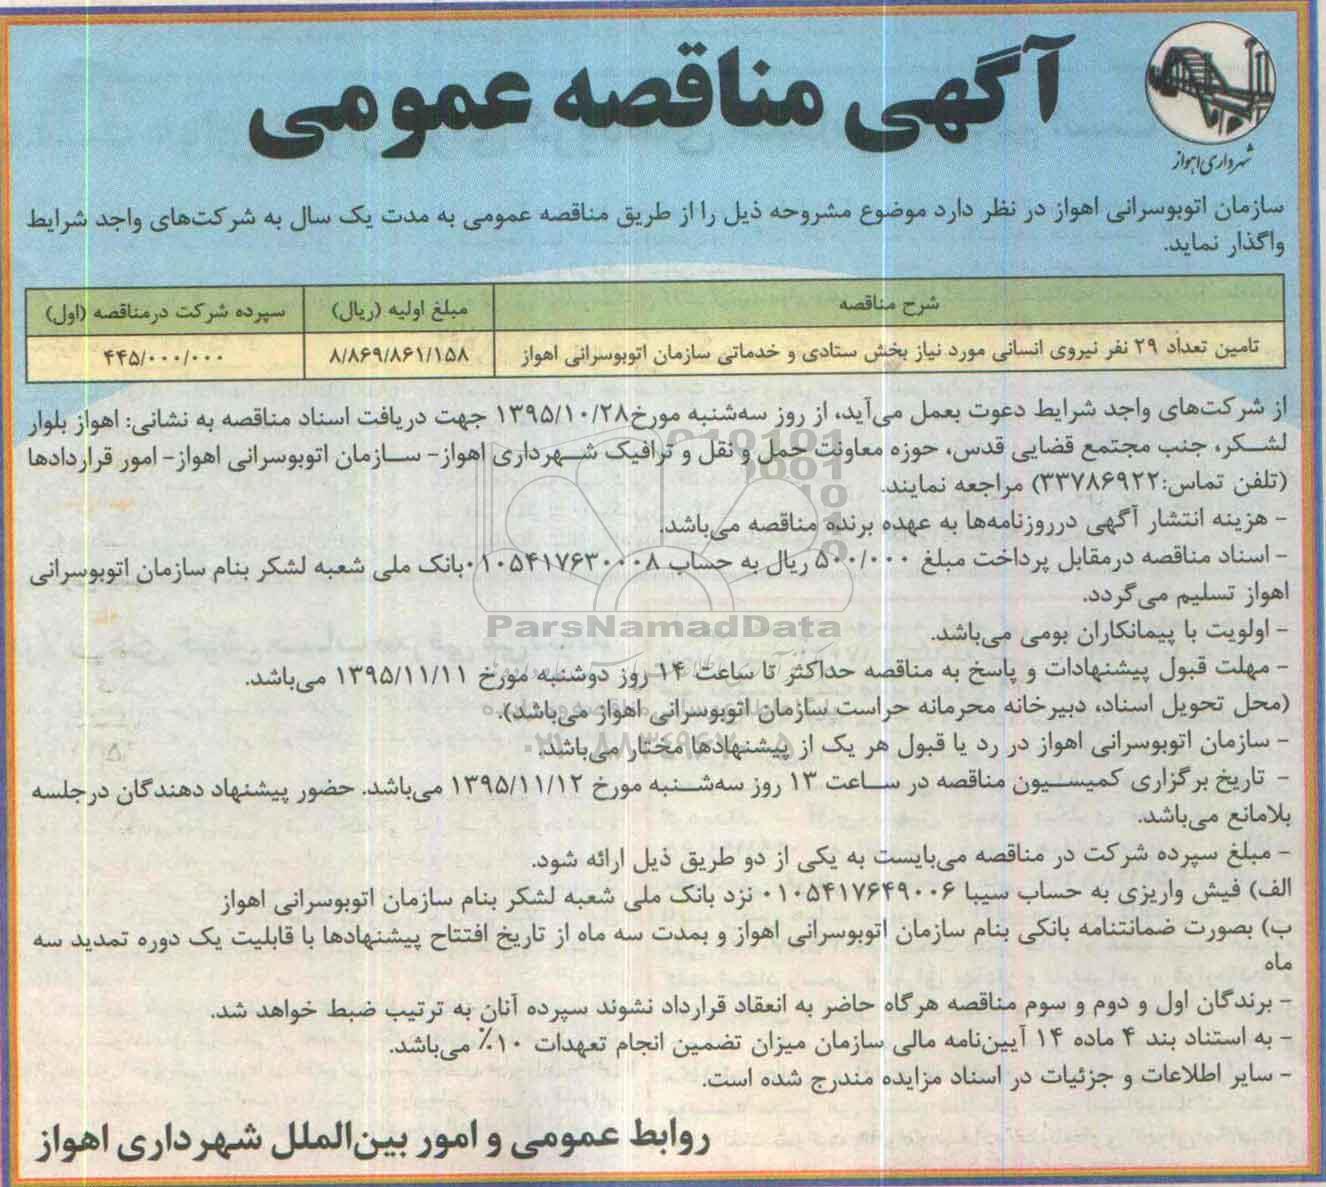 آگهی مناقصه عمومی
شهرداری اهواز
سازمان اتوبوسرانی اهواز در نظر دارد موضوع مشروحه ذیل را از طریق مناقصه عمومی به مدت یک سال به شرکت‌های واجد شرایط
واگذار نماید.
شرح مناقصه مبلغ اولیه (ریال) سپرده شرکت درمناقصه (اول)
تامین تعداد ۲۹ نفر نیروی انسانی مورد نیاز بخش ستادی و خدماتی سازمان اتوبوسرانی اهواز ۸/۸۶۹/۸۶۱/۱۵۸ ۴۴۵/۰۰۰/۰۰۰
از شرکت‌های واجد شرایط دعوت بعمل می‌آید، از روز سه‌شنبه مورخ۱۳۹۵/۱۰/۲۸ جهت دریافت اسناد مناقصه به نشانی: اهواز بلوار
لشکر، جنب مجتمع قضایی قدس، حوزه معاونت حمل و نقل و ترافیک شهرداری اهواز- سازمان اتوبوسرانی اهواز- امور قراردادها
(تلفن تماس:۳۳۷۸۶۹۲۲) مراجعه نمایند.
- هزینه انتشار آگهی درروزنامه‌ها به عهده برنده مناقصه می‌باشد.
- اسناد مناقصه درمقابل پرداخت مبلغ ۵۰۰/۰۰۰ ریال به حساب ۰۱۰۵۴۱۷۶۳۰۰۰۸بانک ملی شعبه لشکر بنام سازمان اتوبوسرانی
اهواز تسلیم می‌گردد.
ParsNamadData
- اولویت با پیمانکاران بومی می‌باشد.
- مهلت قبول پیشنهادات و پاسخ به مناقصه حداکثر تا ساعت ۱۴ روز دوشنبه مورخ ۱۳۹۵/۱۱/۱۱ می‌باشد.
(محل تحویل اسناد، دبیرخانه محرمانه حراست سازمان اتوبوسرانی اهواز می‌باشد).
- سازمان اتوبوسرانی اهواز در رد یا قبول هر یک از پیشنهادها مختار می‌باشد.
- تاریخ برگزاری کمیسیون مناقصه در ساعت ۱۳ روز سه‌شنبه مورخ ۱۳۹۵/۱۱/۱۲ می‌باشد. حضور پیشنهاد دهندگان درجلسه
بلامانع می‌باشد.
- مبلغ سپرده شرکت در مناقصه می‌بایست به یکی از دو طریق ذیل ارائه شود.
الف) فیش واریزی به حساب سیبا ۰۱۰۵۴۱۷۶۴۹۰۰۶ نزد بانک ملی شعبه لشکر بنام سازمان اتوبوسرانی اهواز
ب) بصورت ضمانتنامه بانکی بنام سازمان اتوبوسرانی اهواز و بمدت سه ماه از تاریخ افتتاح پیشنهادها با قابلیت یک دوره تمدید سه
ماه
- برندگان اول و دوم و سوم مناقصه هرگاه حاضر به انعقاد قرارداد نشوند سپرده آنان به ترتیب ضبط خواهد شد.
- به استناد بند ۴ ماده ۱۴ آیین‌نامه مالی سازمان میزان تضمین انجام تعهدات ۱۰٪ می‌باشد.
- سایر اطلاعات و جزئیات در اسناد مزایده مندرج شده است.
روابط عمومی و امور بین‌الملل شهرداری اهواز